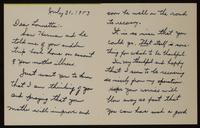 July 31, 1953
Dear Lannette:
Saw Herman and he
told me of your sudden
trip back home on account
of your mother's illness.
Just want you to know
that I am thinking of you
and praying that your
mother will improve and
soon be well on the road
to recovery.
It is so nice that you
could go. That itself is one
thing for which to be thankful.
I'm very thankful and happy
that I seem to be recovering
so nicely from my operation.
Hope your worries will
blow away so fast that
you can have such a good